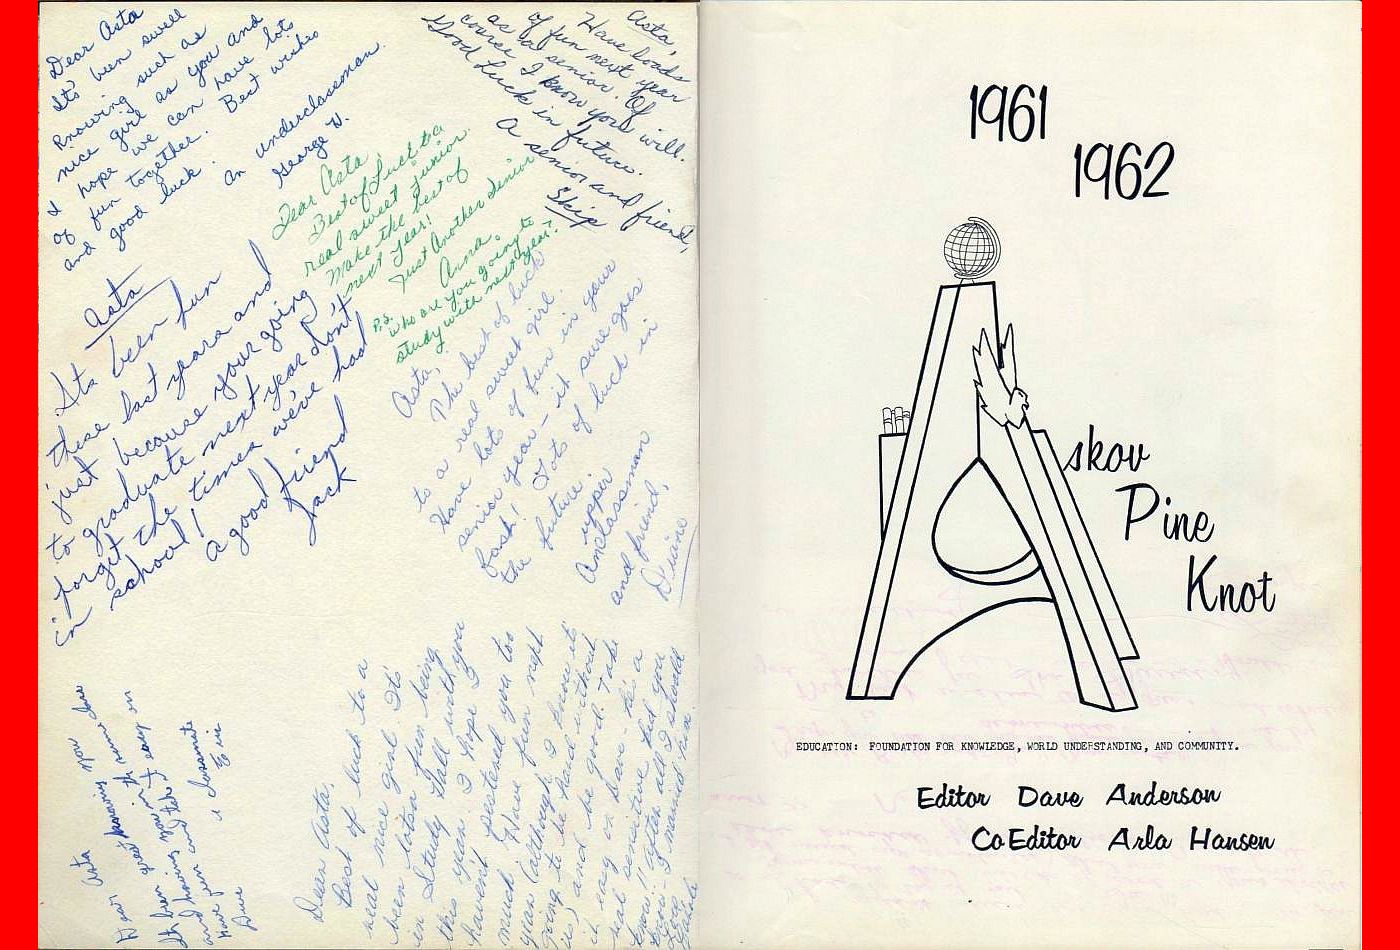 Dear Asta
It's been swell
knowing such as
nice girl as you and
I hope we can have lots
of fun together. Best wishes
and good luck.
an underclassman.
George W.
Asta,
Have loads
of fun next year
as a senior. Of
course I know you will.
Good Luck in future.
A senior and friend,
Skip
Dear Asta,
Best of Luck to a
real sweet junior
Make the best of
next year!
Just Another Senior
Anna
P.S.
who are you going to
study with next year?
Asta
Its been fun
these last years and
just because your going
to graduate next year don't
forget the times we've had
in school!
a good friend
Jack
Asta,
The best of luck
to a real sweet girl.
Have lots of fun in your
senior year - it sure goes
fast! Lots of luck in
the future.
upper
Anclassman
and friend,
Diane
Asta
It's been great knowing you
and having you in the same
Have fun and take it easy
a classmate
Dave
Dear Asta,
Best of luck to a
real nice girl. It's
been lotsa fun being
in Study Hall with you
this year. I hope I
haven't pestered you too
much. Have fun next
year (although I know it's
going to be hard without
us) and be good. Take
it easy on Dave - he's a
real sensitive kid you
know!! after all I should
1961
1962
Askov
Pine
Knot
EDUCATION: FOUNDATION FOR KNOWLEDGE, WORLD UNDERSTANDING, AND COMMUNITY.
Editor Dave Anderson
CoEditor Arla Hansen